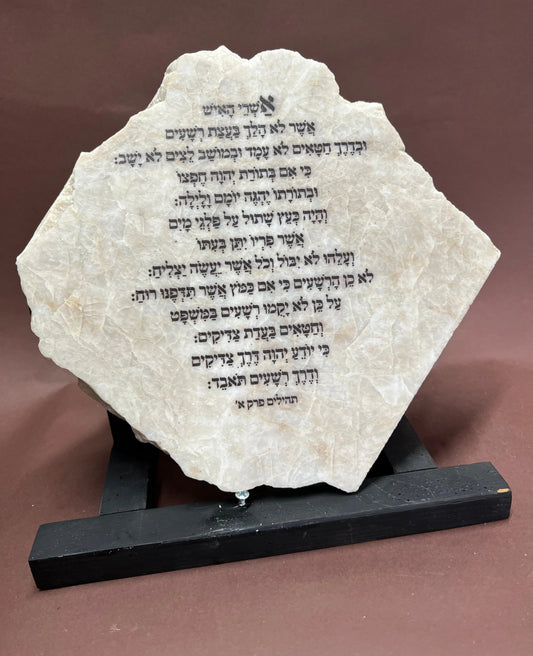 אַשְׁרֵי הָאִישׁ
אֲשֶׁר לֹא הָלַךְ בַּעֲצַת רְשָׁעִים
וּבְדֶרֶךְ חַטָּאִים לֹא עָמָד וּבְמוֹשַׁב לֵצִים לֹא יָשָׁב:
כִּי אִם בְּתוֹרַת יְהוָה חֶפְצוֹ
וּבְתוֹרָתוֹ יֶהְגֶּה יוֹמָם וָלָיְלָה:
וְהָיָה כְּעֵץ שָׁתוּל עַל פַּלְגֵי מָיִם
אֲשֶׁר פִּרְיוֹ יִתֵּן בְּעִתּוֹ
וְעָלֵהוּ לֹא יִבּוֹל וְכֹל אֲשֶׁר יַעֲשֶׂה יַצְלִיחַ:
לֹא כֵן הָרְשָׁעִים כִּי אִם כַּמֹּץ אֲשֶׁר תִּדְּפֶנּוּ רוּחַ:
עַל כֵּן לֹא יָקֻמוּ רְשָׁעִים בַּמִּשְׁפָּט
וְחַטָּאִים בַּעֲדַת צַדִּיקִים:
כִּי יוֹדֵעַ יְהוָה דֶּרֶךְ צַדִּיקִים
וְדֶרֶךְ רְשָׁעִים תֹּאבֵד:
תהילים פרק א'